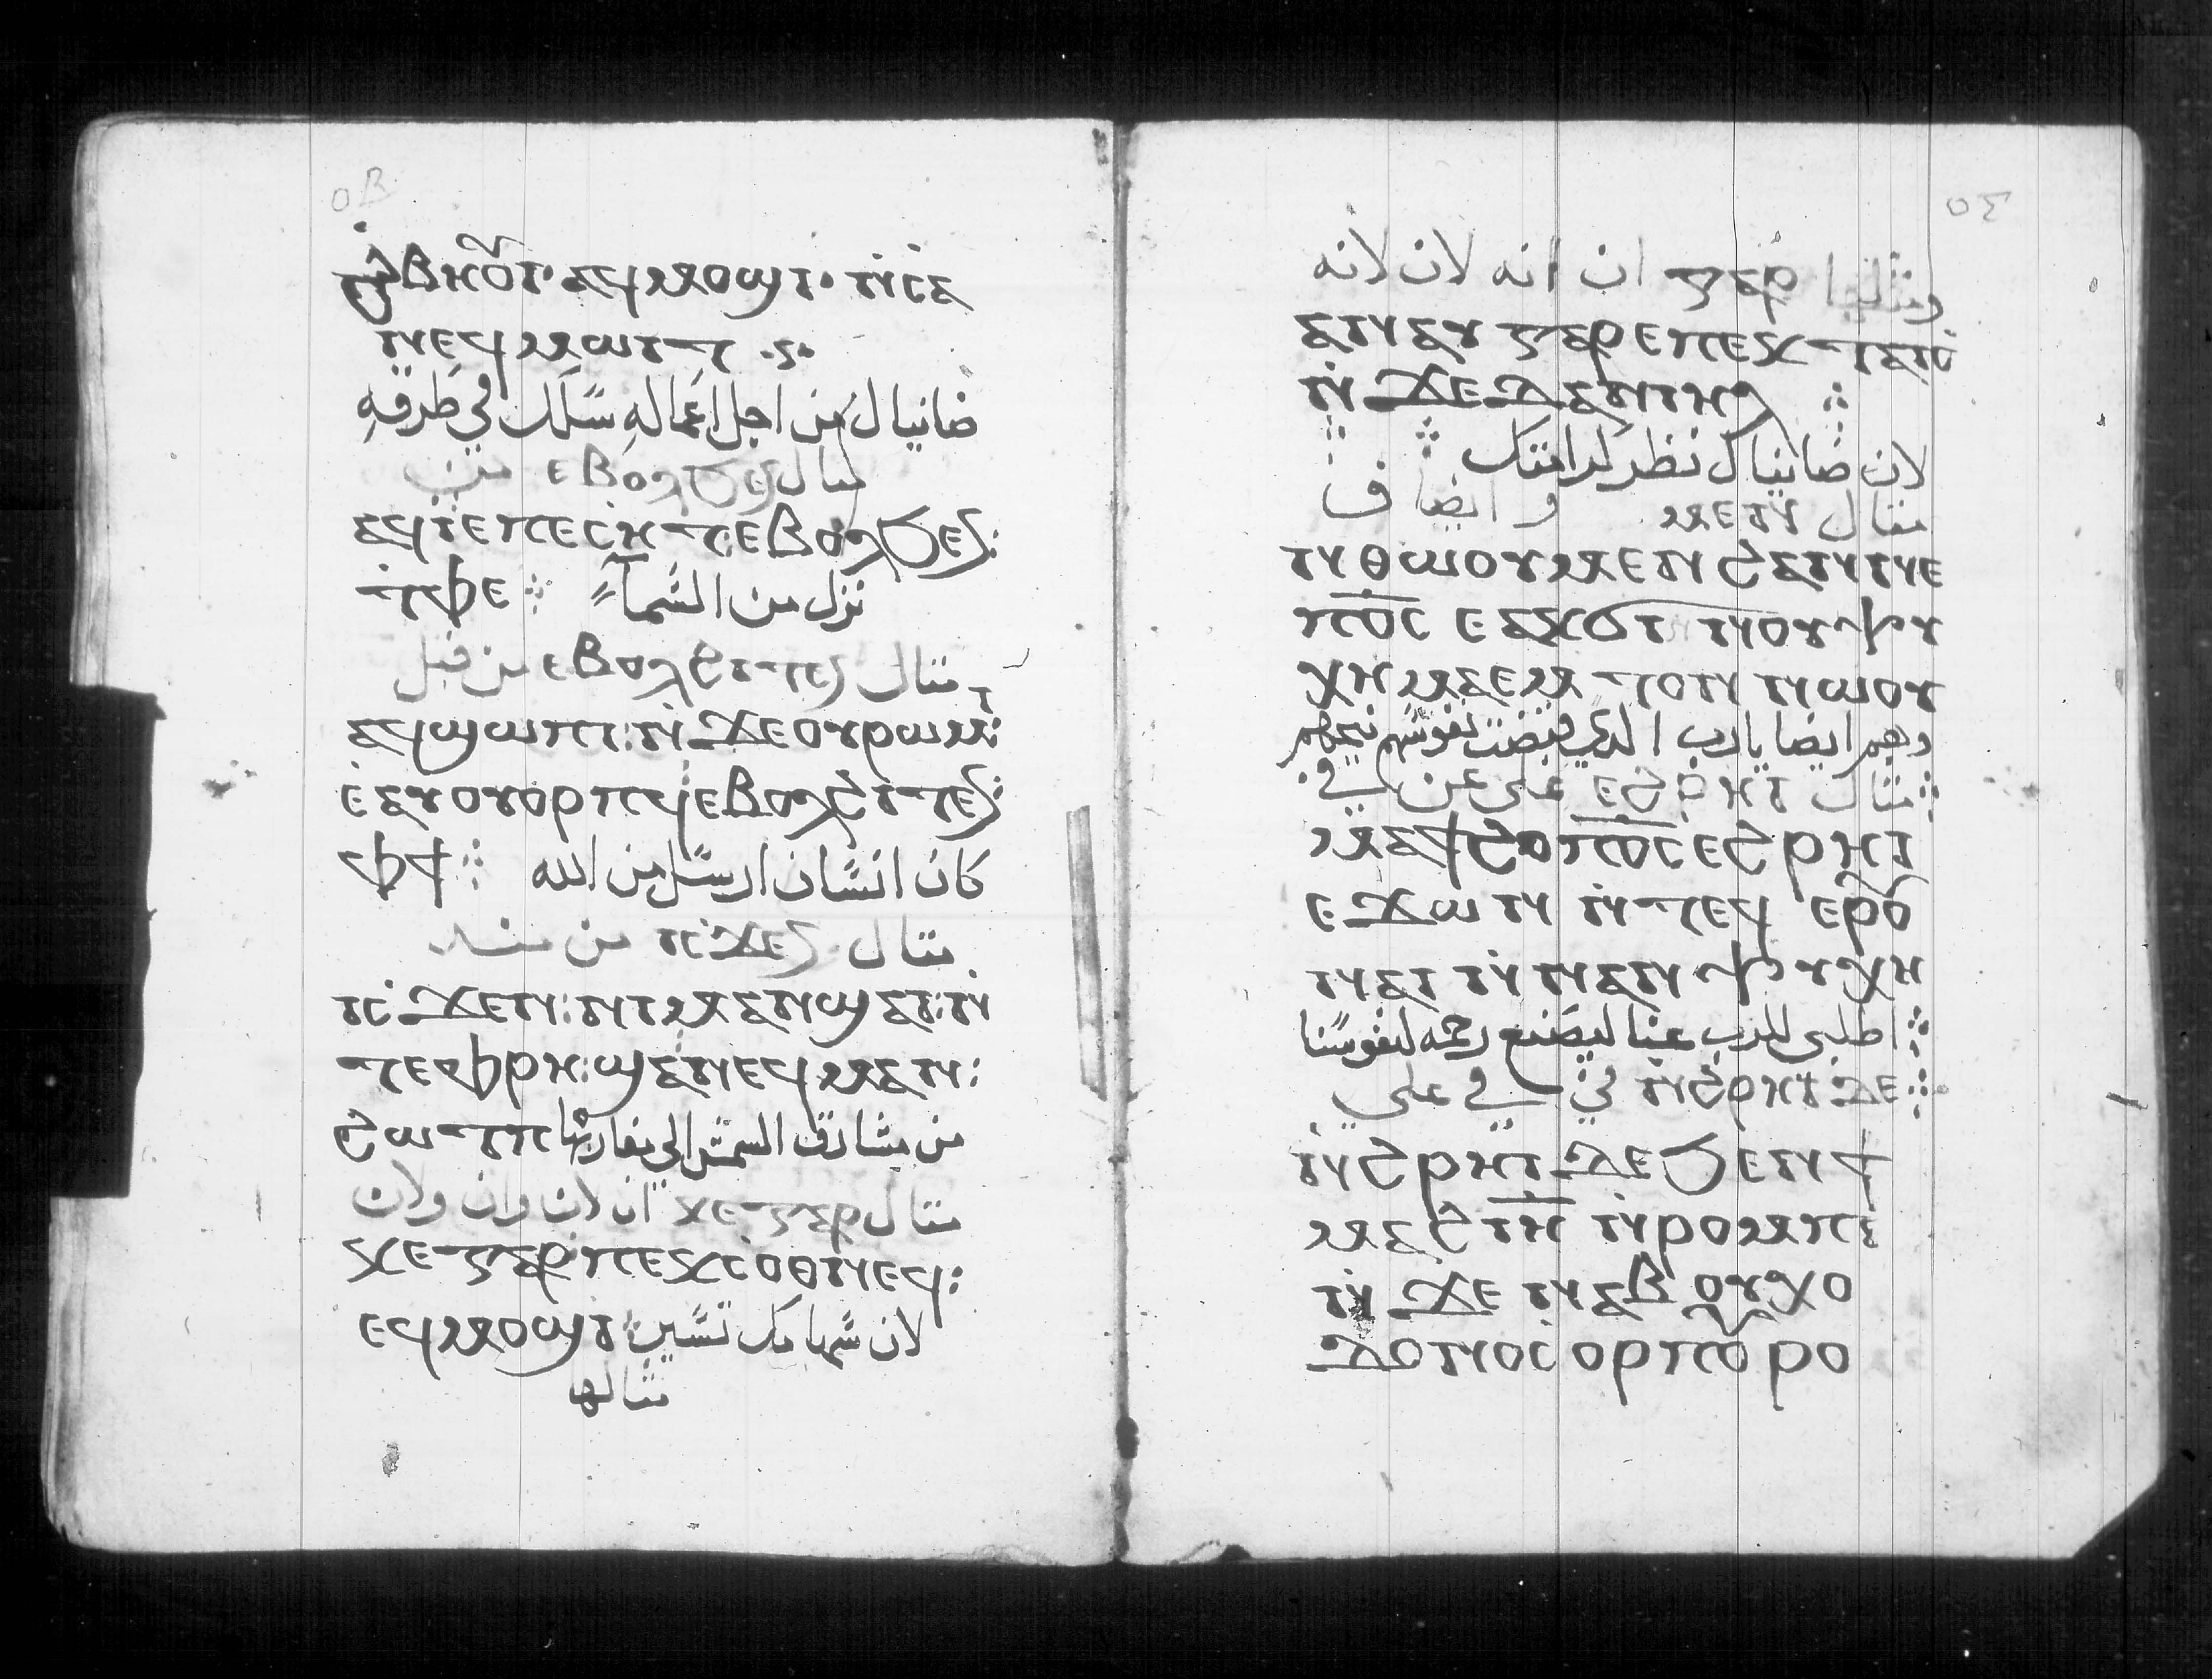 ⲟⲃ
ϩⲃⲏⲟⲩⲓ· ⲁϥⲙⲟϣⲓ· ⲛ̀ⲥⲁ
ⲛⲉϥⲙⲱⲓⲧ
ضانيال من اجل اعماله سَلك في طرقه
مثال ⲉⲃⲟⲗϧⲉⲛ من
ⲁϥⲓⲉⲡⲉⲥⲏⲧ ⲉⲃⲟⲗϧⲉⲛ:
ⲧⲫⲉ نزل من السَماء
مثال ⲉⲃⲟⲗϩⲓⲧⲉⲛ من قبل
ⲁϥϣⲱⲡⲓ: ⲛ̀ϫⲉⲟⲩⲣⲱⲙⲓ:
ⲉ̀ⲁⲩⲟⲩⲟⲣⲡϥ ⲉⲃⲟⲗϩⲓⲧⲉⲛ:
ⲫϯ كان انسَان ارسَل من الله
مثال ⲓⲥϫⲉⲛ من منذ
ⲓⲥϫⲉⲛ: ⲛⲓⲙⲁⲛϣⲁⲓ: ⲛ̀
ⲧⲉⲫⲣⲏ: ϣⲁⲛⲉϥⲙⲁⲛ:
ϩⲱⲧⲡ من مشارق الشمس الي مغاربها
مثال ϫⲉ ⲅⲁⲣ ان لان وان ولان
ϫⲉ ⲅⲁⲣ ⲡⲉⲕⲥⲟⲑⲛⲉϥ:
ⲉϥⲙⲟϣⲓ لان سَهامك تسَير
مثالها
ⲟⲅ
ومثالها ⲅⲁⲣ ان انه لان لانه
ⲁⲛⲁⲩ ⲅⲁⲣ ⲉⲡⲉⲕⲧⲁⲓⲟ
ⲛ̀ϫⲉ ⲇⲁⲛⲓⲏⲗ
لان ضانيال نظر كرامتك
مثال ⲙⲉⲛ و ايضا ف
ⲛⲑⲱⲟⲩ ⲙⲉⲛ ϩⲁⲛⲛⲉ
ⲡⲟⲥ ⲉⲁⲕϭⲓ ⲛⲟⲩⲯⲩ
ⲭⲏ ⲙⲁⲉⲙⲧⲟⲛ ⲛⲱⲟⲩ
وهم ايضا يارب الذي قبضت نفوسَهم نيحهم
مثال ⲉϩⲣⲏⲓ علي عن في
ⲙⲁϯϩⲟ ⲡⲟⲥ ⲉϩⲣⲏⲓ
ⲉϫⲱⲛ ⲛⲧⲉϥ ⲉⲣⲟⲩ
ⲛⲁⲓ ⲛ̀ⲛⲁⲛⲯⲩⲭⲏ
اطلبي للرب عنا ليصنع رحمه لنفوسَنا
ⲛϩⲣⲏⲓ ⲇⲉ في علي
ⲛϩⲣⲏⲓ ⲇⲉ ϧⲉⲛ ϯ
ⲙⲁϩ ⲓⲏ ⲛⲣⲟⲙⲡⲓ
ⲛ̀ϫⲉ ⲛⲁⲃⲟⲩⲭⲟ
ⲇⲟⲛⲟⲥⲟⲣ ⲡⲟⲩⲣⲟ